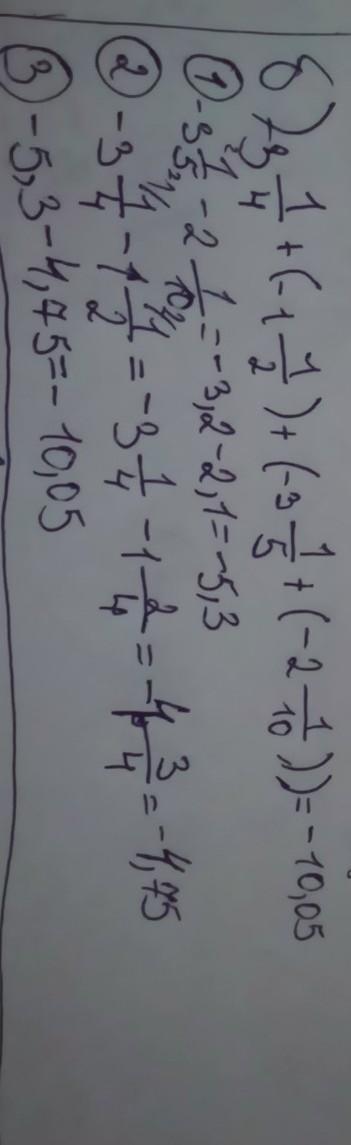 б) -3 1/4 + (-1 1/2) + (-3 1/5 + (-2 1/10)) = -10,05
① -3 1/5 - 2 1/10 = -3,2 - 2,1 = -5,3
② -3 1/4 - 1 1/2 = -3 1/4 - 1 2/4 = -4 3/4 = -4,75
③ -5,3 - 4,75 = -10,05